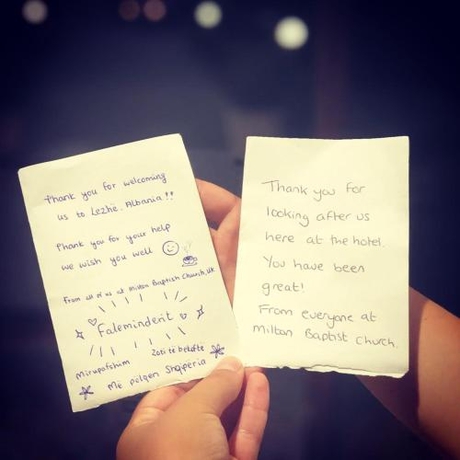 Thank you for welcoming
us to Lezhë, Albania!!
Thank you for your help
we wish you well
From all of us at Milton Baptist Church, UK
Faleminderit
Mirupafshim
Zoti të bekofte
Më pelqen Shqiperia
Thank you for
looking after us
here at the hotel.
You have been
great!
From everyone at
Milton Baptist Church.